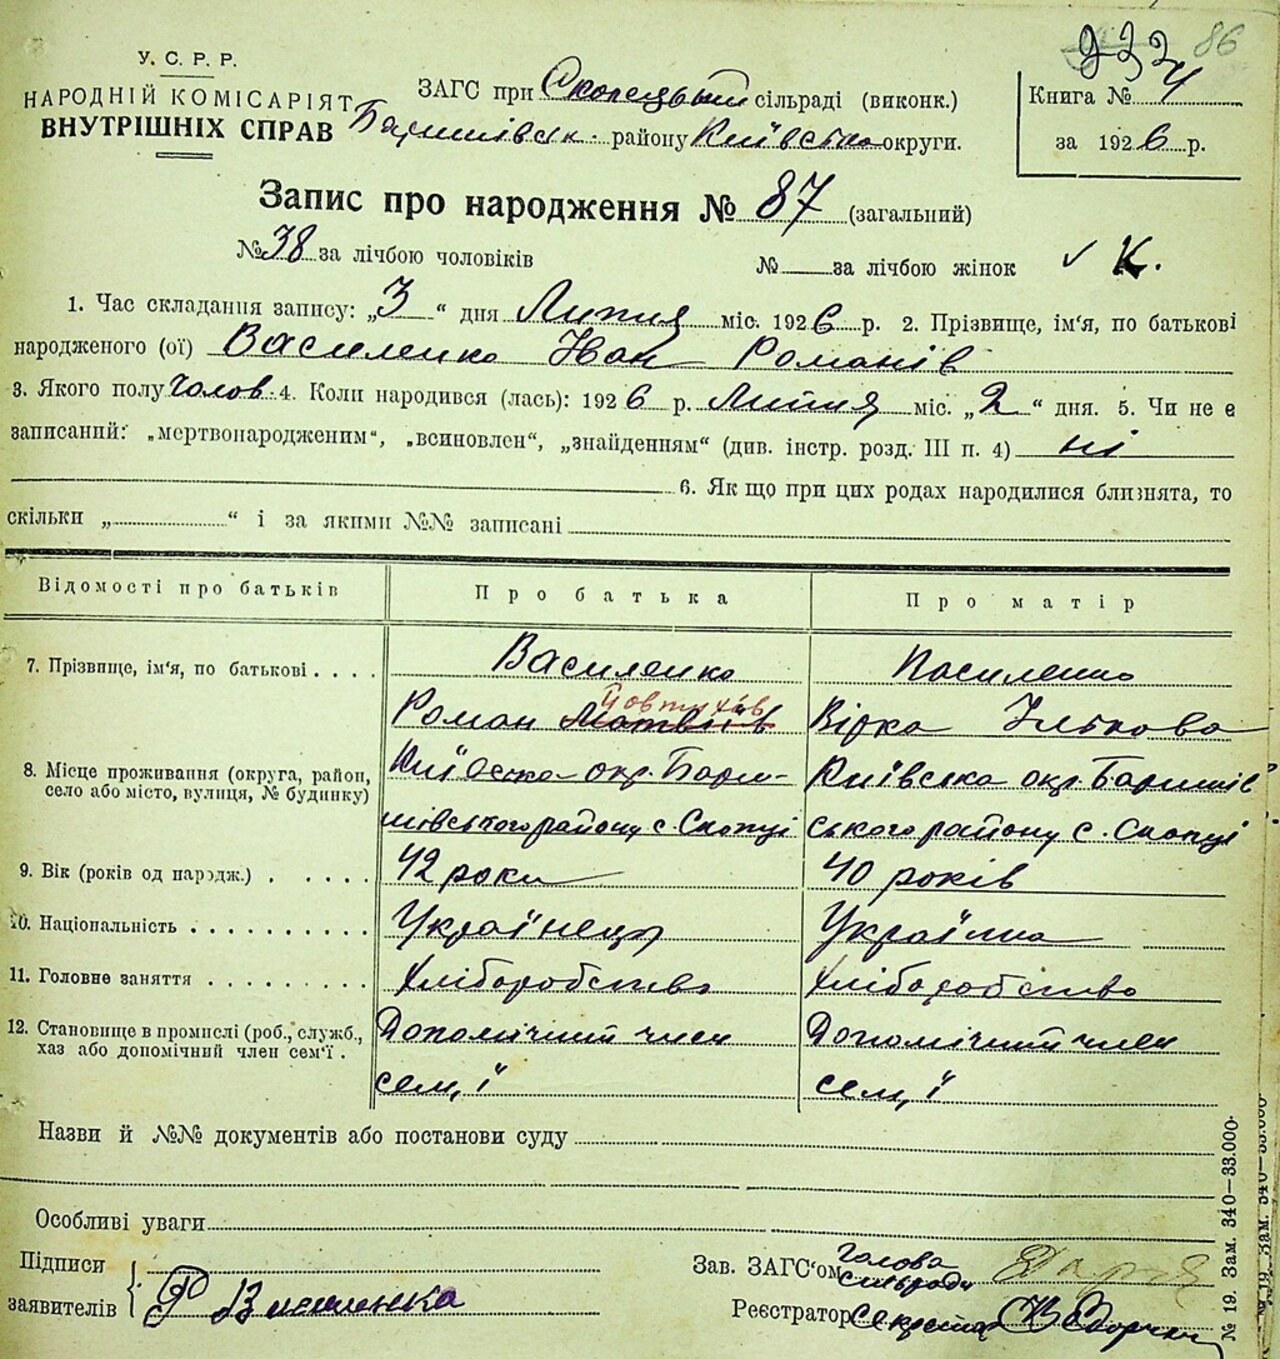 86
933
У. С. Р. Р.
НАРОДНІЙ КОМІСАРІЯТ
ВНУТРІШНІХ СПРАВ
ЗАГС при Скопецький сільраді (виконк.)
Баришівськ. району Київська округи.
Книга № 4
за 1926 р.
Запис про народження № 87 (загальний)
№ 38 за лічбою чоловіків № за лічбою жінок К.
1. Час складання запису: „3“ дня Липня міс. 1926 р. 2. Прізвище, ім‘я, по батькові
народженого (ої) Василенко Іван Романів
3. Якого полу чолов. 4. Коли народився (лась): 1926 р. Липня міс. „2“ дня. 5. Чи не є
записаний: „мертвонародженим“, „всиновлен“, „знайденням“ (див. інстр. розд. III п. 4) ні
6. Як що при цих родах народилися близнята, то
скільки „ “ і за якими №№ записані
Відомості про батьків Про батька Про матір
7. Прізвище, ім‘я, по батькові . . . . Василенко Василенко
Роман Матвіїв Вірка Ількова
8. Місце проживання (округа, район,
село або місто, вулиця, № будинку)
Київська окр. Бари-
шівського району с. Скопці
Київська окр. Баришів
ського району с. Скопці
9. Вік (років од народж.) . . . . . 42 роки 40 років
10. Національність . . . . . . . . . . Українець Українка
11. Головне заняття . . . . . . . . . Хліборобство Хліборобство
12. Становище в промислі (роб., служб.,
хаз або допомічний член сем‘ї .
Допомічний член
сем,ї
Допомічний член
сем,ї
Назви й №№ документів або постанови суду
Особливі уваги
Підписи
заявителів
Р Василенка
Зав. ЗАГС‘ом Голова
сільради
Реєстратор Секретар
№ 19. Зам. 340—33.000·